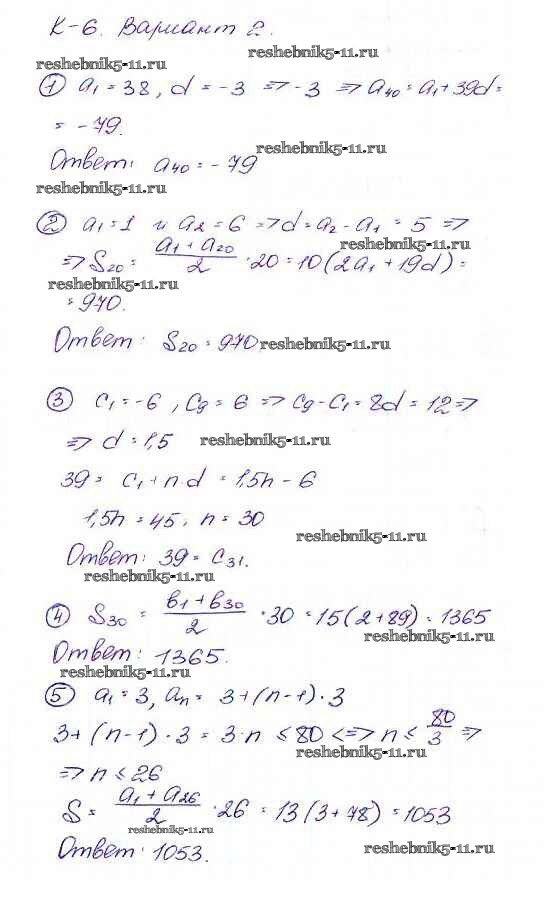 К-6. Вариант 2.
reshebnik5-11.ru
① a₁ = 38, d = -3 => -3 => a₄₀ = a₁ + 39d =
= -79.
reshebnik5-11.ru
Ответ: a₄₀ = -79
reshebnik5-11.ru
② a₁ = 1 и a₂ = 6 => d = a₂ - a₁ = 5 =>
reshebnik5-11.ru
=> S₂₀ = (a₁ + a₂₀)/2 · 20 = 10(2a₁ + 19d) =
reshebnik5-11.ru
= 970.
Ответ: S₂₀ = 970.
reshebnik5-11.ru
③ C₁ = -6, C₉ = 6 => C₉ - C₁ = 8d = 12 =>
=> d = 1,5
reshebnik5-11.ru
39 = C₁ + n d = 1,5n - 6
1,5n = 45, n = 30
reshebnik5-11.ru
Ответ: 39 = C₃₁.
reshebnik5-11.ru
④ S₃₀ = (в₁ + в₃₀)/2 · 30 = 15(2 + 89) = 1365
reshebnik5-11.ru
Ответ: 1365.
reshebnik5-11.ru
⑤ a₁ = 3, aₙ = 3 + (n - 1) · 3
3 + (n - 1) · 3 = 3 · n ≤ 80 <=> n ≤ 80/3 =>
reshebnik5-11.ru
=> n ≤ 26
S = (a₁ + a₂₆)/2 · 26 = 13(3 + 78) = 1053
reshebnik5-11.ru
Ответ: 1053.
reshebnik5-11.ru